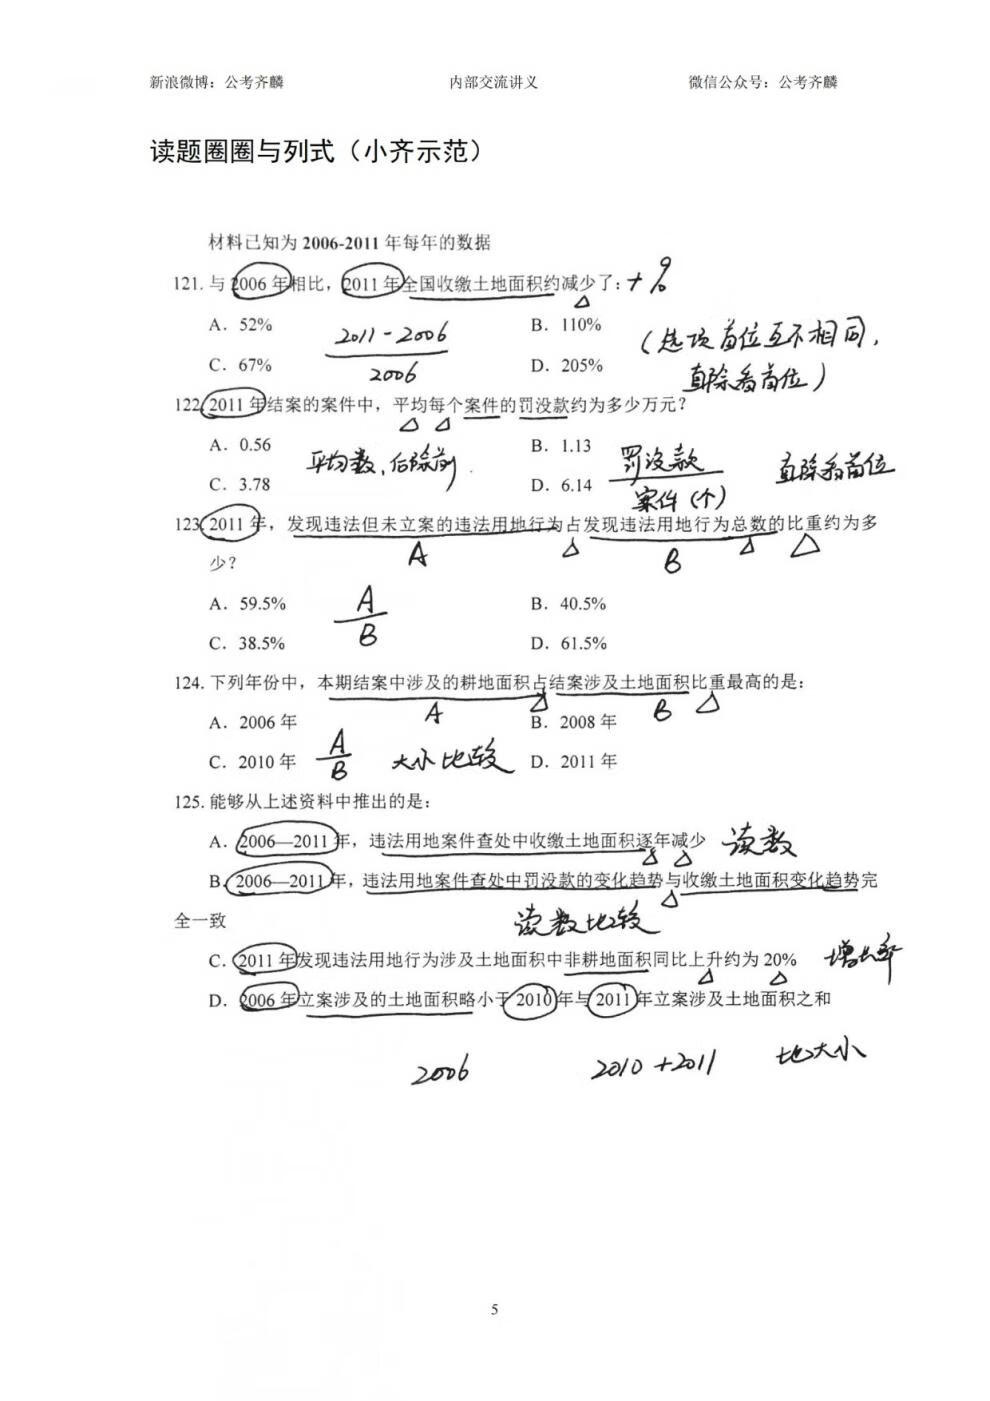 新浪微博：公考齐麟 内部交流讲义 微信公众号：公考齐麟
读题圈圈与列式（小齐示范）
材料已知为 2006-2011 年每年的数据
121. 与 2006 年相比，2011 年全国收缴土地面积约减少了： + %
A．52% B．110%
2011-2006
2006
（选项首位互不相同，
直除看首位）
C．67% D．205%
122. 2011 年结案的案件中，平均每个案件的罚没款约为多少万元？
A．0.56 B．1.13
平均数，后除前
罚没款
案件（个）
直除看首位
C．3.78 D．6.14
123. 2011 年，发现违法但未立案的违法用地行为占发现违法用地行为总数的比重约为多
A B
少？
A．59.5% B．40.5%
A
B
C．38.5% D．61.5%
124. 下列年份中，本期结案中涉及的耕地面积占结案涉及土地面积比重最高的是：
A B
A．2006 年 B．2008 年
A
B
大小比较
C．2010 年 D．2011 年
125. 能够从上述资料中推出的是：
A．2006—2011 年，违法用地案件查处中收缴土地面积逐年减少 读数
B．2006—2011 年，违法用地案件查处中罚没款的变化趋势与收缴土地面积变化趋势完
全一致 读数比较
C．2011 年发现违法用地行为涉及土地面积中非耕地面积同比上升约为 20% 增长率
D．2006 年立案涉及的土地面积略小于 2010 年与 2011 年立案涉及土地面积之和
2006 2010+2011 比大小
5